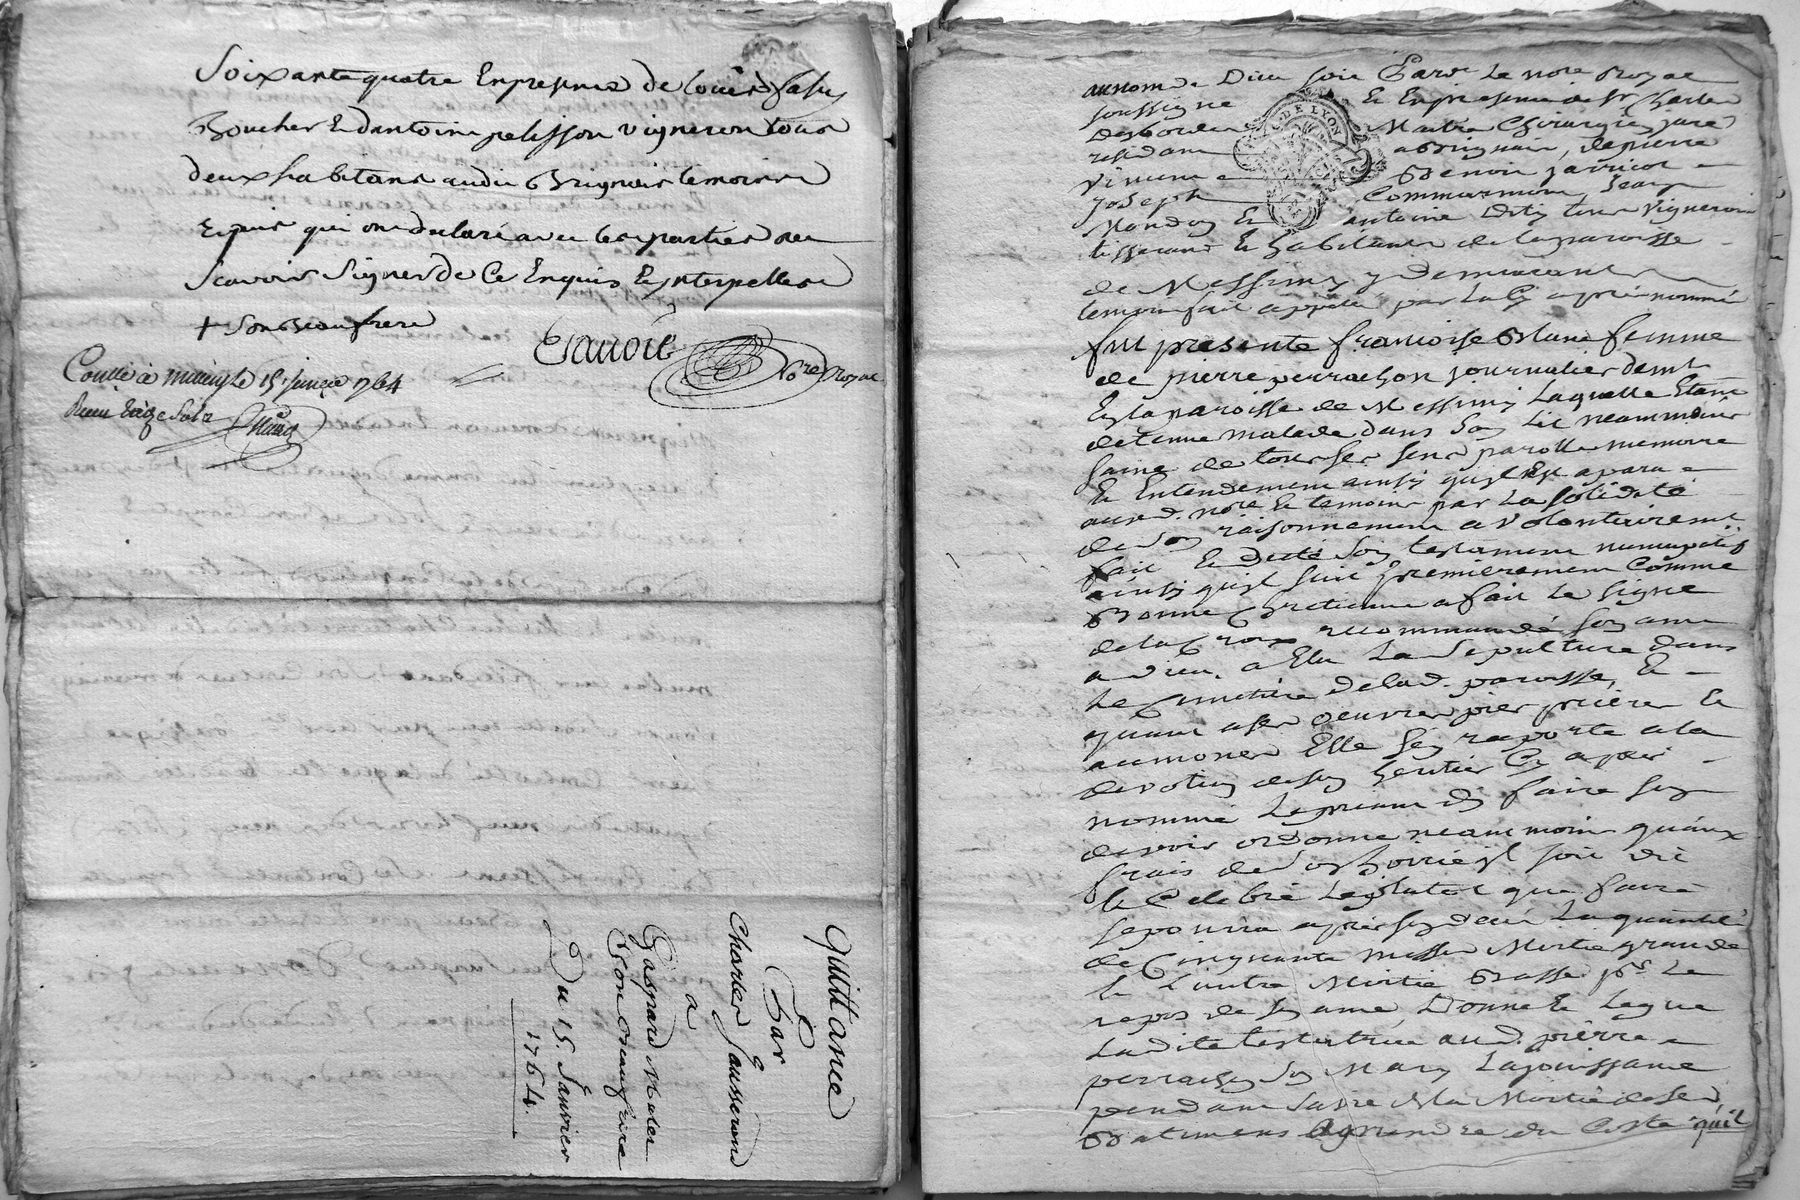 Soixante quatre En presence de Louis
Boucher Et dantoine pelisson vigneron tous
deux habitans audit Brignais temoins
Requis qui ont declaré avec les parties ne
scavoir signer de Ce Enquis Et Interpelles
+ son Beaufrere
nore Royal
Conllé à le 15 janvier 1764
Receu treize sols
Quittance
Par
Charles Jausserand
a
Gaspard
son Beaufrere
Du 15. Janvier
1764.
au nom de Dieu soit Par le nore Royal
soussigné Et En presence de Sr
Maitre Chirurgien juré
residant a Brignais, de pierre
Benoit jarricot
joseph Commarmond, jean
Et antoine tous vignerons
tisserand Et habitants de la paroisse
de Messimy y demeurants
temoins fait appeller par la Cy apres nommée
fut presente francoise Blanc femme
de pierre perrachon journalier demt
En la paroisse de Messimy Laquelle Etant
detenue malade dans son lit neammoins
saine de tous ses sens parolle memoire
Et Entendement ainsy quil Est aparu
aud. nore Et temoins par la solidité
de son raisonnement a volontairemt
fait Et dicté son testament nuncupatif
ainsy quil suit premierement Comme
Bonne Chretienne a fait le signe
de la Croix recommandé son ame
a Dieu, a Elu la sepulture dans
le Cimetiere de lad. paroisse, Et
quant a ses oeuvres pies prieres Et
aumones Elle sen raporte a la
devotion de son heritier Cy apres
nommé le priant dy faire son
devoir ordonne neammoins quaux
frais de son hoirie il soit dit
Et Celebré le plutot que faire
se pourra apres son deces la quantité
de Cinquante messes Moitié grande
Et lautre Moitié Basse pr le
repos de son ame, Donne Et legue
Ladite testatrice aud. pierre
perrachon son Mary la jouissance
pendant sa vie de la Moitié de ses
Batimens a prendre du Costé quil